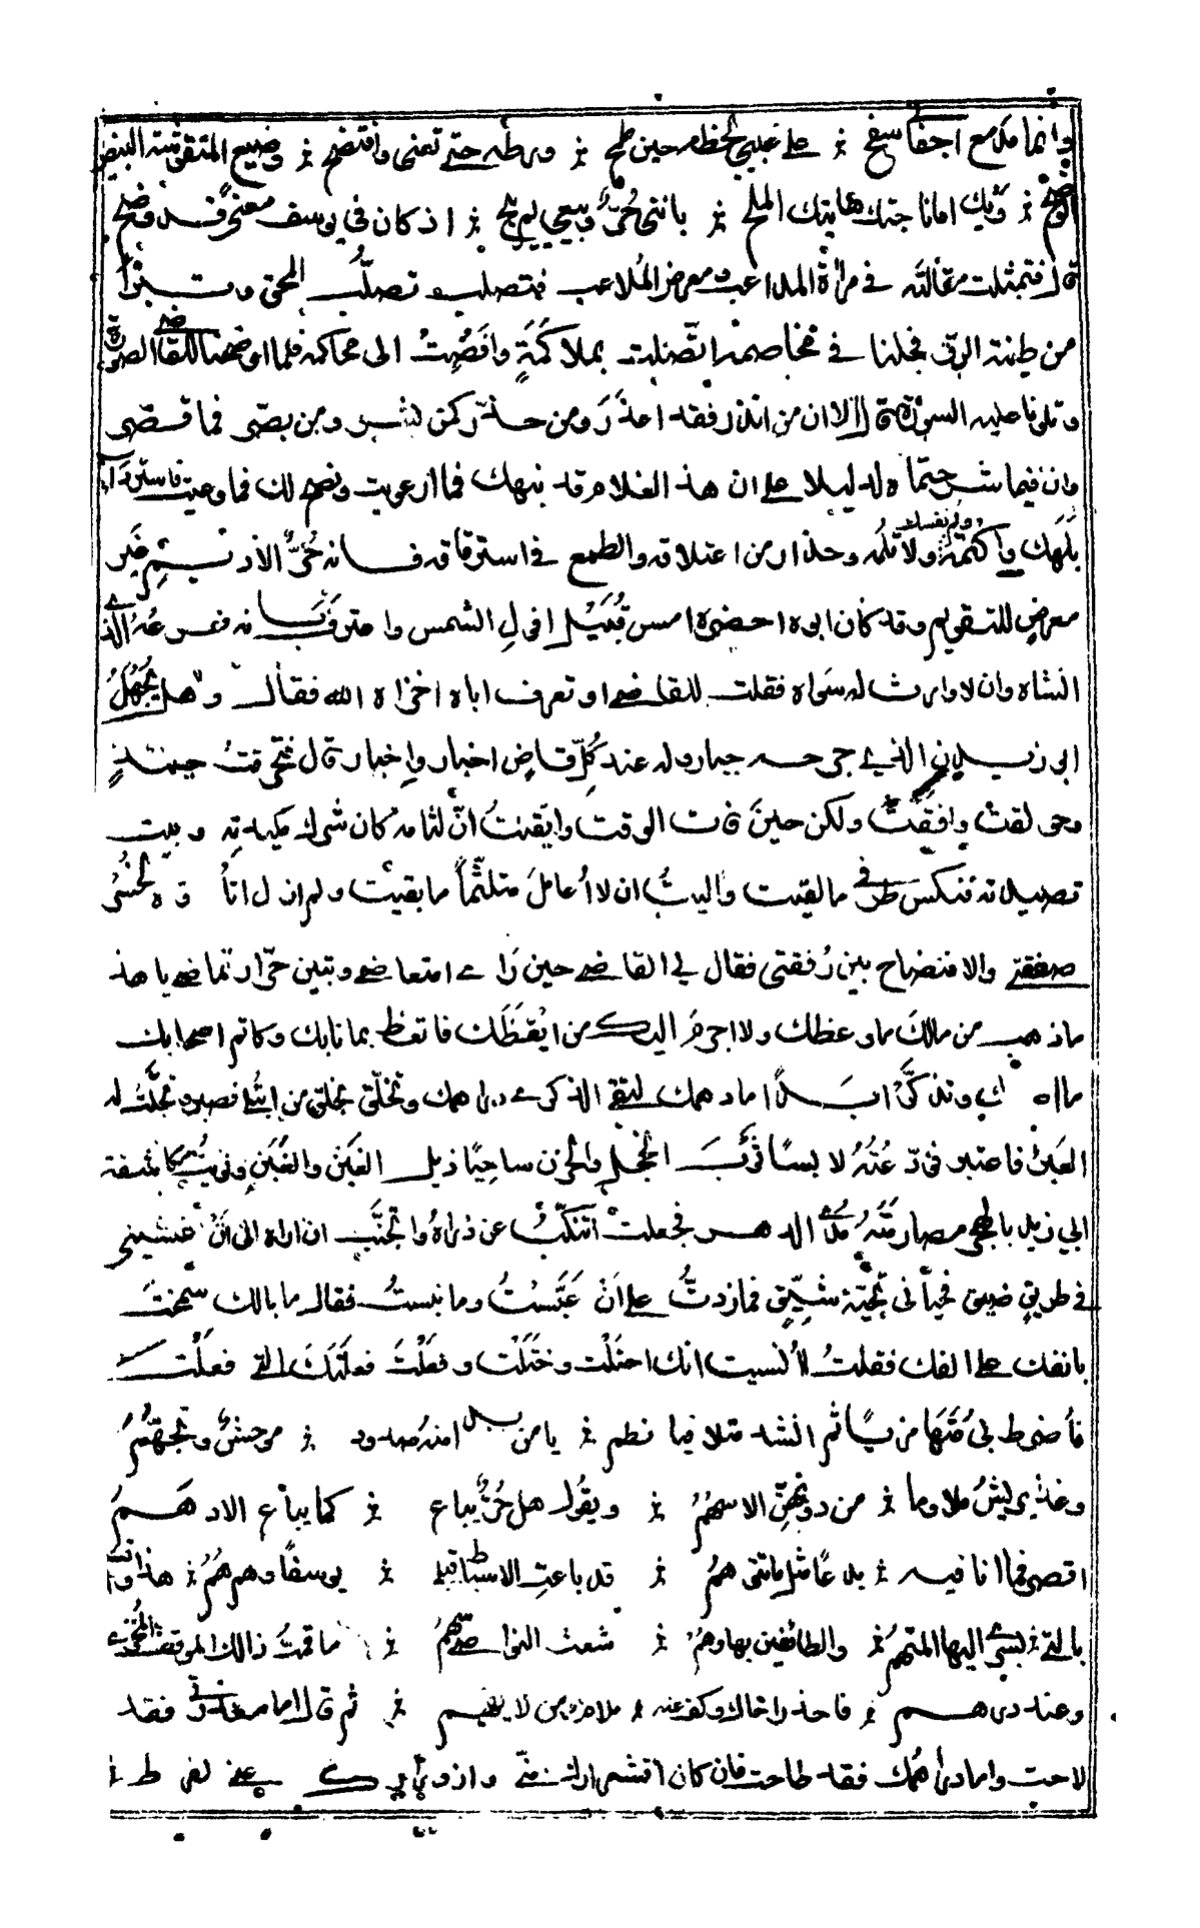 وانما مدمع اجفاني سفح ٪ على غبي لحظه حين طمح ٪ ورطه حتى تعنى وافتضح ٪ وضيع المنقوشة البيض
الوضح ٪ ويك اما ناجتك هاتيك الملح ٪ بانني حر وبيعي لم يبح ٪ اذ كان في يوسف معنى قد وضح
قال فتمثلت مقالته في مرأة المداعب ومعرض الملاعب فتصلب تصلب المحق وتبرأ
من طينة الرق فجلنا في مخاصمة اتصلت بملاكمة وافضت الى محاكمة فلما اوضحنا للقاضي الصورة
وتلونا عليه السورة قال الا ان من انذر فقد اعذر ومن حذر كمن بشر ومن بصر فما قصر
وان فيما شرحتماه لدليلا على ان هذا الغلام قد نبهك فما ارعويت ونصح لك فما وعيت فاستر داء
بلهك واكتمه ولم نفسك ولا تلمه وحذار من اعتلاقه والطمع في استرقاقه فانه حر الاديم غير
معرض للتقويم وقد كان ابوه احضره امس قبيل افول الشمس واعترف بانه فرعه الذي
انشاه وان لا وارث له سواه فقلت للقاضي او تعرف اباه اخزاه الله فقال وهل يجهل
ابو زيد الذي جرحه جبار وله عند كل قاض اخبار واخبار قال فتحرقت حينئذ
وحولقت وافقت ولكن حين فات الوقت وايقنت ان لثامه كان شرك مكيدته وبيت
قصيدته فنكس طرفي ما لقيت واليت ان لا اعامل متلثما ما بقيت ولم ازل اتأوه لخسر
صفقتي والافتضاح بين رفقتي فقال لي القاضي حين رأى امتعاضي وتبين حر ارتماضي يا هذا
ما ذهب من مالك ما وعظك ولا اجرم اليك من ايقظك فاتعظ بما نابك وكاتم اصحابك
ما اصابك وتذكر ابدا ما دهمك لتقي الذكرى دراهمك وتخلق بخلق من ابتلي فصبر وتجلت له
العبر فاعتبر فودعته لابسا ثوب الخجل والحزن ساحبا ذيل الغبن والغبن ونويت مكاشفة
ابي زيد بالهجر ومصارمته مدى الدهر فجعلت اتنكب عن ذراه واتجنب ان اراه الى ان غشيني
في طريق ضيق فحياني تحية شيق فما زدت على ان عبست وما نبست فقال ما بالك شمخت
بانفك على الفك فقلت أنسيت انك احتلت وختلت وفعلت فعلتك التي فعلت
فأضرط بي متهازيا ثم انشد متلافيا نظم ٪ يا من بدا منه صدود ٪ موحش وتجهم
وغدا يريش ملاوما ٪ من دونهن الاسهم ٪ ويقول هل حر يباع ٪ كما يباع الادهم
اقصر فما انا فيه ٪ بدعا مثل ما تتوهم ٪ قد باعت الاسباط قبلي ٪ يوسفا وهم هم ٪ هذا واقسم
بالتي ٪ يسري اليها المتهم ٪ والطائفين بها وهم ٪ شعث النواصي سهم ٪ ما قمت ذالك الموقف المخزي
وعندي درهم ٪ فاعذر اخاك وكف عنه ٪ ملام من لا يفهم ٪ ثم قال اما معذرتي فقد
لاحت واما دراهمك فقد طاحت فان كان اقشعرارك مني وازورارك عني لفرط